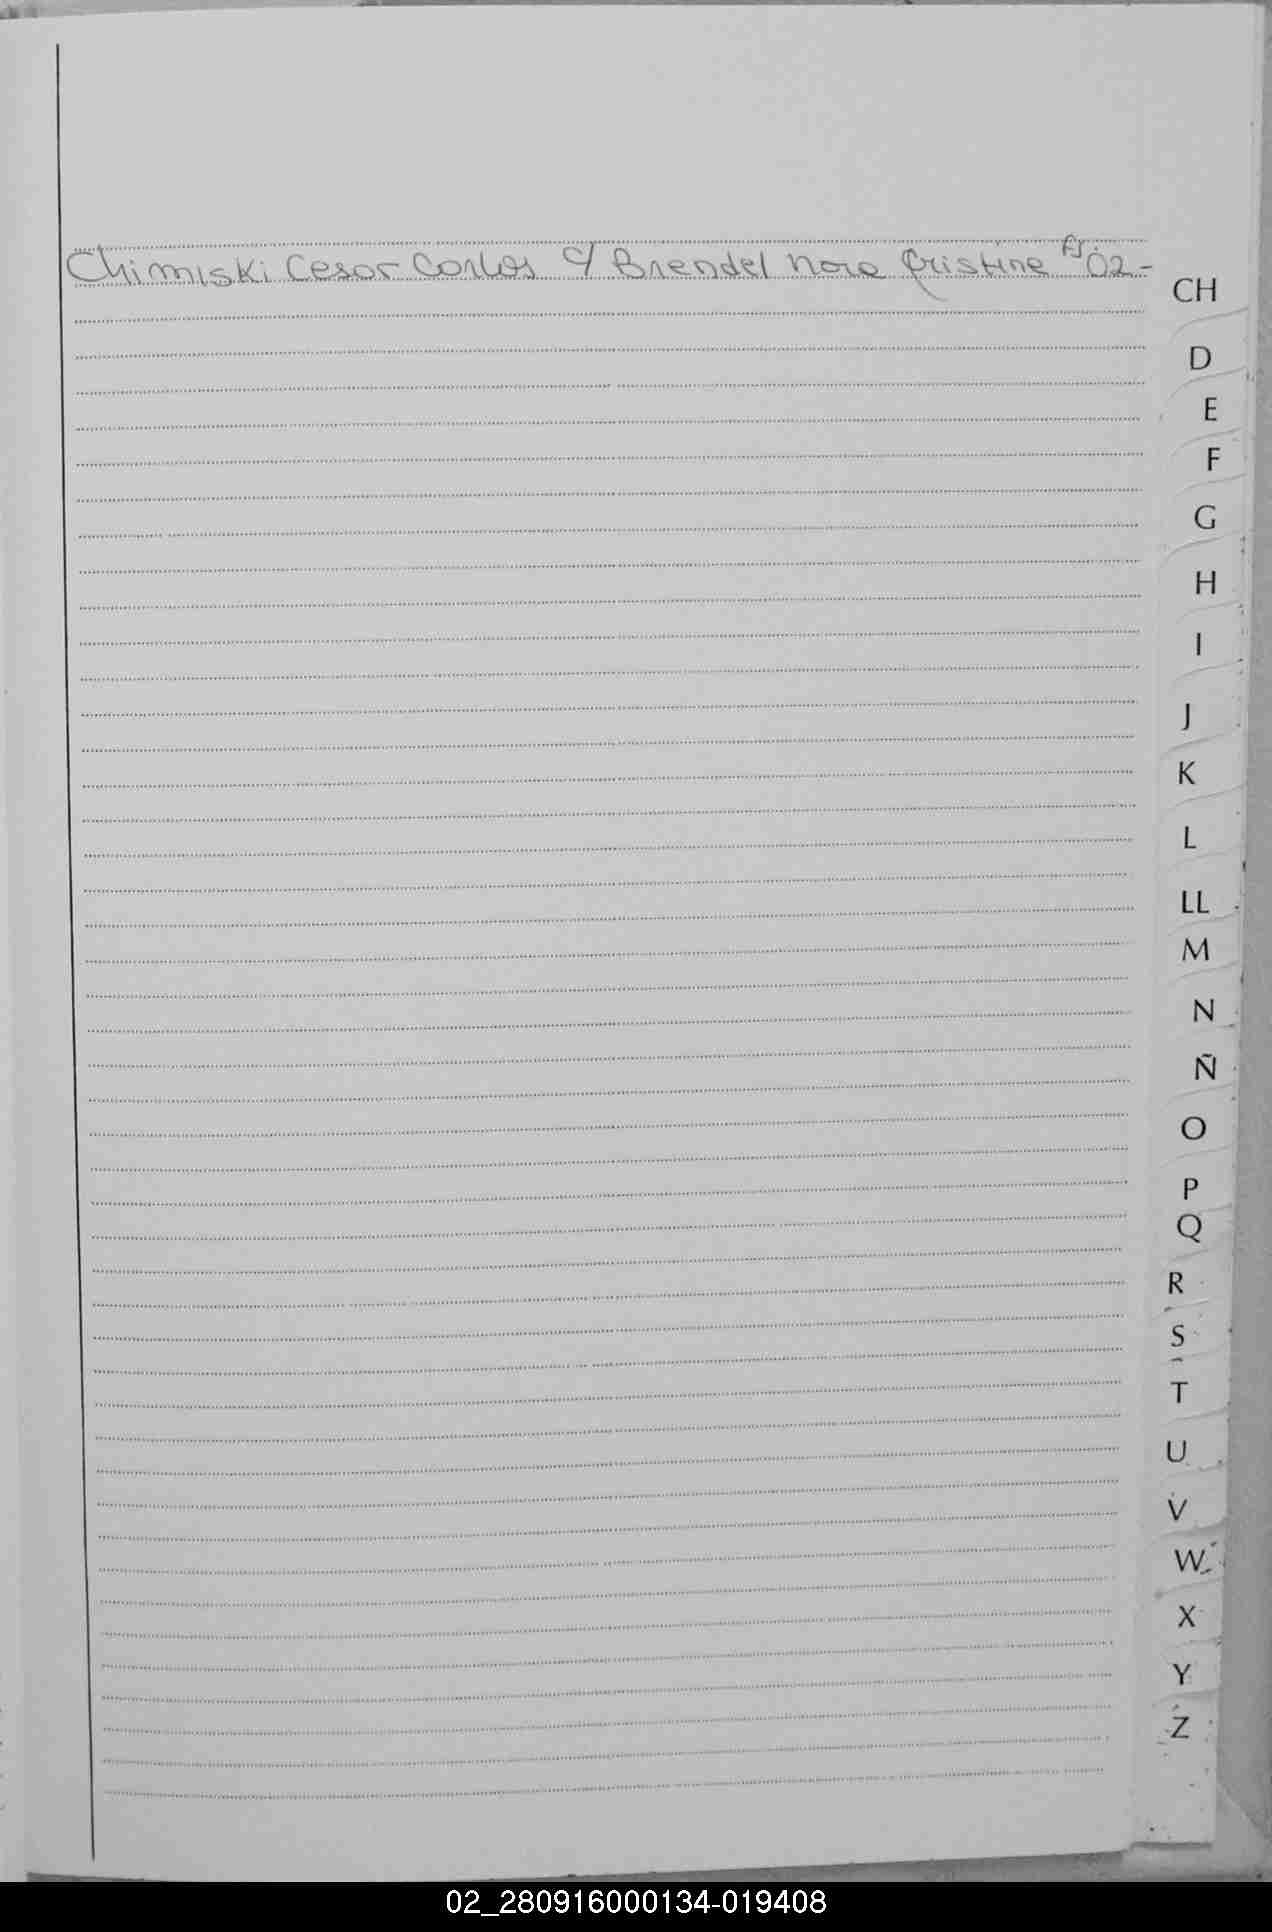 Chimiski Cesar Carlos c/ Brendel Nora Cristina Fs 02-
CH
D
E
F
G
H
I
J
K
L
LL
M
N
Ñ
O
P
Q
R
S
T
U
V
W
X
Y
Z
02_280916000134-019408